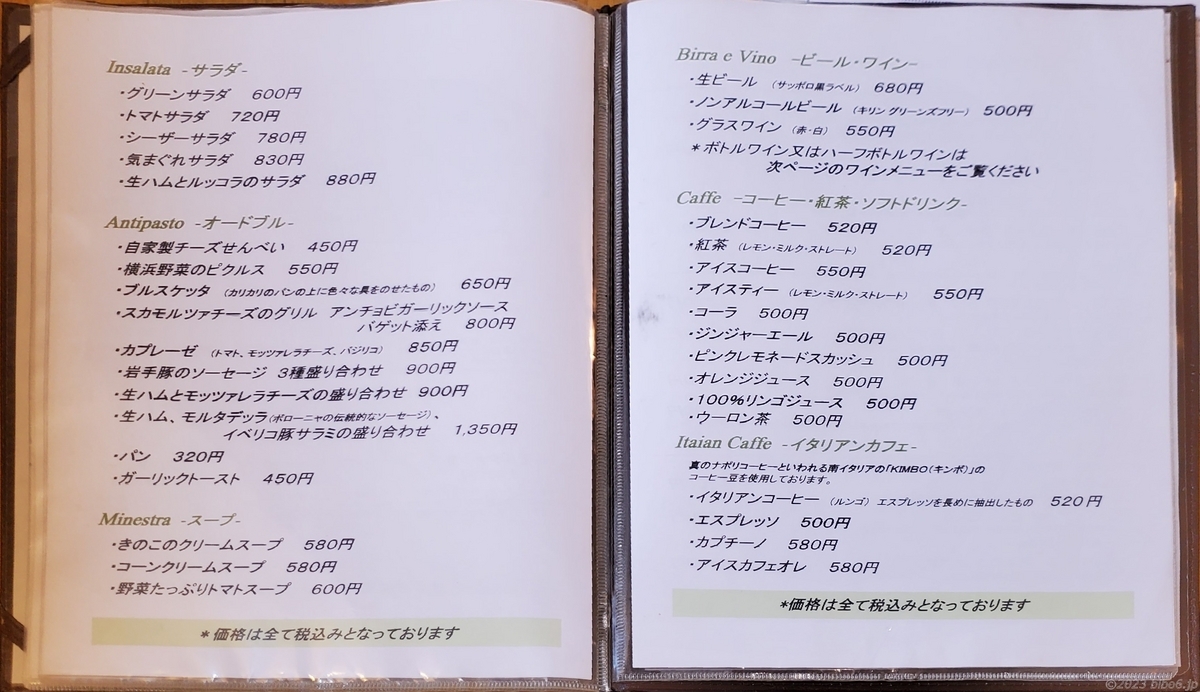 Insalata -サラダ-
・グリーンサラダ 600円
・トマトサラダ 720円
・シーザーサラダ 780円
・気まぐれサラダ 830円
・生ハムとルッコラのサラダ 880円
Antipasto -オードブル-
・自家製チーズせんべい 450円
・横浜野菜のピクルス 550円
・ブルスケッタ (カリカリのパンの上に色々な具をのせたもの) 650円
・スカモルツァチーズのグリル アンチョビガーリックソース
バゲット添え 800円
・カプレーゼ (トマト、モッツァレラチーズ、バジリコ) 850円
・岩手豚のソーセージ 3種盛り合わせ 900円
・生ハムとモッツァレラチーズの盛り合わせ 900円
・生ハム、モルタデッラ(ボローニャの伝統的なソーセージ)、
イベリコ豚サラミの盛り合わせ 1,350円
・パン 320円
・ガーリックトースト 450円
Minestra -スープ-
・きのこのクリームスープ 580円
・コーンクリームスープ 580円
・野菜たっぷりトマトスープ 600円
*価格は全て税込みとなっております
Birra e Vino -ビール・ワイン-
・生ビール (サッポロ黒ラベル) 680円
・ノンアルコールビール (キリン グリーンズフリー) 500円
・グラスワイン (赤・白) 550円
*ボトルワイン又はハーフボトルワインは
次ページのワインメニューをご覧ください
Caffe -コーヒー・紅茶・ソフトドリンク-
・ブレンドコーヒー 520円
・紅茶 (レモン・ミルク・ストレート) 520円
・アイスコーヒー 550円
・アイスティー (レモン・ミルク・ストレート) 550円
・コーラ 500円
・ジンジャーエール 500円
・ピンクレモネードスカッシュ 500円
・オレンジジュース 500円
・100%リンゴジュース 500円
・ウーロン茶 500円
Itaian Caffe -イタリアンカフェ-
真のナポリコーヒーといわれる南イタリアの「KIMBO(キンボ)」の
コーヒー豆を使用しております。
・イタリアンコーヒー (ルンゴ) エスプレッソを長めに抽出したもの 520円
・エスプレッソ 500円
・カプチーノ 580円
・アイスカフェオレ 580円
*価格は全て税込みとなっております
©2023 bibo6.jp